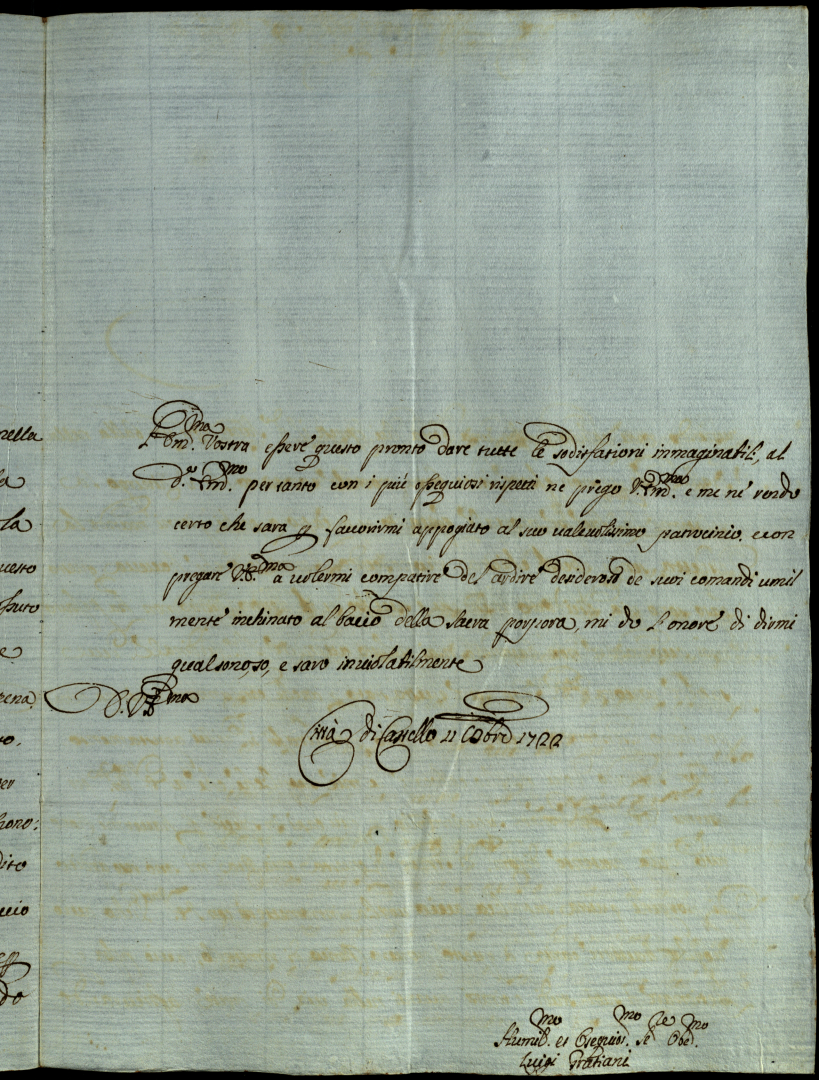 nella
la
la
uesto
e
pena.
ro.
er
hono:
dito
ucio
do
l'Em.ma Vostra essere questo pronto dare tutte le sodisfationi inmaginabili, al
d.o Em.mo per tanto con i più osseguiosi rispetti ne prego V. Em.ma e me ne rendo
certo che sara p favorirmi appogiato al suo valevolissimo patrocinio. e con
pregare V.E.ma a volermi compatire del ardire desideroso de suoi comandi umil
mente inchinato al bacio della sacra porpora, mi do l'onore di dirmi
qual sono, so, e saro inviolabilmente
D. V. E.ma
Città di Castello 11 Xbre 1722
Humil.mo et Osequios.mo Se.re Obed.mo
Luigi Gratiani